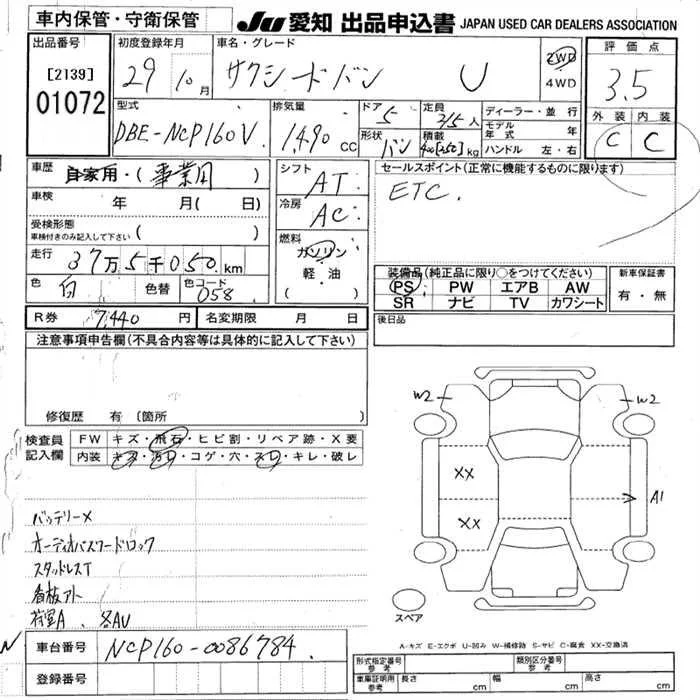 車内保管・守衛保管
JU 愛知 出品申込書 JAPAN USED CAR DEALERS ASSOCIATION
出品番号
[2139]
01072
初度登録年月
29 10月
車名・グレード
サクシードバン U
2WD
4WD
評価点
3.5
外装 内装
C C
型式
DBE-NCP160V
排気量
1,490 cc
ドア 5
形状 バン
定員 2/5人
積載 400[250]kg
ディーラー・並行
モデル年式 年
ハンドル 左・右
車歴 自家用・(事業用)
車検 年 月( 日)
受検形態
車検付きのみ記入して下さい ( )
走行 37万5千050km
色 白 色替 色コード 058
シフト AT
冷房 AC
燃料
ガソリン
軽・油
( )
セールスポイント(正常に機能するものに限ります)
ETC.
装備品(純正品に限り○をつけてください)
PS PW エアB AW
SR ナビ TV カワシート
新車保証書
有・無
R券 7,440円 名変期限 月 日
後日品
注意事項申告欄(不具合内容等は具体的に記入して下さい)
修復歴 有 〔箇所
検査員記入欄
FW キズ・飛石・ヒビ割・リペア跡・X要
内装 キズ・汚レ・コゲ・穴・スレ・キレ・破レ
バッテリーメ
オーディオパスワードロック
スタッドレスT
看板アト
荷室A、各AU
W2
W2
XX
XX
A1
スペア
A-キズ E-エクボ U-凹み W-補修跡 S-サビ C-腐食 XX-交換済
車台番号 NCP160-0086784
登録番号
形式指定番号 参考
類別区分番号 参考
車庫証明用 参考 長さ cm 幅 cm 高さ cm